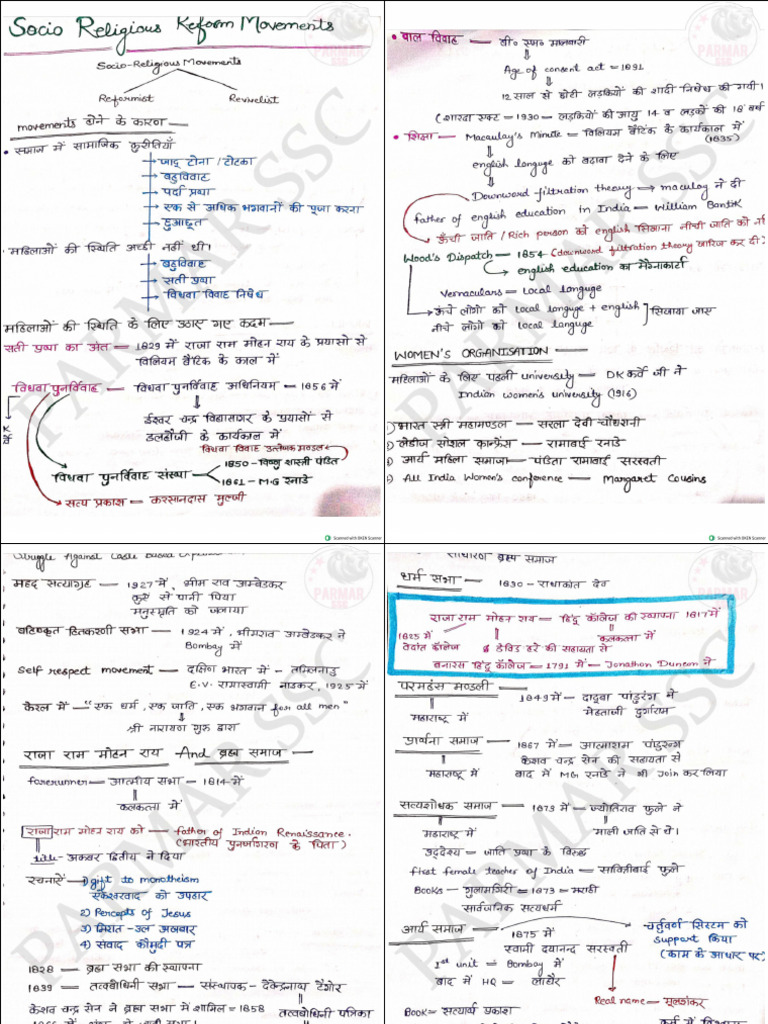 Socio Religious Reform Movements
Socio-Religious Movements
Reformist
Revivelist
movements होने के कारण
• समाज में सामाजिक कुरीतियाँ
→ जादू टोना / टोटका
→ बहुविवाह
→ पर्दा प्रथा
→ एक से अधिक भगवानों की पूजा करना
→ छुआछूत
• महिलाओं की स्थिति अच्छी नहीं थी।
→ बहुविवाह
→ सती प्रथा
→ विधवा विवाह निषेध
महिलाओं की स्थिति के लिए उठाए गए कदम
सती प्रथा का अंत — 1829 में राजा राम मोहन राय के प्रयासो से
विलियम बैंटिक के काल में
विधवा पुनर्विवाह — विधवा पुनर्विवाह अधिनियम — 1856 में
ईश्वर चन्द्र विद्यासागर के प्रयासों से
डलहौजी के कार्यकाल में
विधवा विवाह उत्तेजक मण्डल
1850 - विष्णु शास्त्री पंडित
विधवा पुनर्विवाह संस्था
1861 - M.G रानाडे
→ सत्य प्रकाश — करसानदास मुल्जी
• बाल विवाह — बी० एम० मालबारी
Age of consent act = 1891
12 साल से छोटी लड़कियों की शादी निषेध की गयी।
(शारदा एक्ट = 1930 — लड़कियों की आयु 14 व लड़कों की 18 वर्ष
• शिक्षा — Macaulay's Minute = विलियम बैंटिक के कार्यकाल में
(1835)
english languge को बढावा देने के लिए
Downward filtration theory → maculay ने दी
father of english education in India — William Bantik
→ ऊँची जाति / Rich person को english सिखाना नीची जाति को नही
Wood's Dispatch — 1854 (downward filtration theory खारिज कर दी)
→ english education का मैग्नाकार्टा
Vernaculars = local languge
→ ऊँचे लोगो को local languge + english
नीचे लोगों को local languge
सिखाया जाए
WOMEN'S ORGANISATION
महिलाओं के लिए पहली university — DK कर्वे जी ने
Indian women's university (1916)
भारत स्त्री महामण्डल — सरला देवी चौधरानी
लेडीज सोशल कान्फ्रेंस — रामाबाई रनाडे
आर्य महिला समाज — पंडिता रामाबाई सरस्वती
All India Women's conference — Margaret Cousins
Scanned with OKEN Scanner
Scanned with OKEN Scanner
Struggle Against Caste Based
महद सत्याग्रह — 1927 में, भीम राव अम्बेडकर
कुएँ से पानी पिया
मनुस्मृति को जलाया
बहिष्कृत हितकरणी सभा — 1924 में, भीमराव अम्बेडकर ने
Bombay में
Self respect movement — दक्षिण भारत में - तमिलनाडु
E.V. रामास्वामी नाइकर, 1925 में
केरल में — "एक धर्म, एक जाति, एक भगवान for all men"
श्री नारायण गुरु द्वारा
राजा राम मोहन राय And ब्रह्म समाज
forerunner — आत्मीय सभा — 1814 में
कलकत्ता में
राजा राम मोहन राय को — father of Indian Renaissance.
(भारतीय पुनर्जागरण के पिता)
title - अकबर द्वितीय ने दिया
रचनाऐं — 1) gift to monotheism
एकेश्वरवाद को उपहार
2) Percepts of Jesus
3) मिरात-उल अखबार
4) संवाद कौमुदी पत्र
1828 — ब्रह्म सभा की स्थापना
1839 — तत्वबोधिनी सभा — संस्थापक - देवेन्द्रनाथ टैगोर
केशव चन्द्र सेन ने ब्रह्म सभा में शामिल = 1858
तत्वबोधिनी पत्रिका
साधारण ब्रह्म समाज
धर्म सभा — 1830 - राधाकांत देव
राजा राम मोहन राय — हिंदू कॉलेज की स्थापना 1817 में
1825 में
वेदांत कॉलेज
कलकत्ता में
डेविड हरे की सहायता से
बनारस हिंदू कॉलेज — 1791 में — Jonathon Duncan ने
परमहंस मण्डली — 1849 में — दादूबा पांडुरंग ने
मेहताजी दुर्गाराम
महाराष्ट्र में
प्रार्थना समाज — 1867 में — आत्माराम पांडुरंग
केशव चन्द्र सेन की सहायता से
महाराष्ट्र में
बाद में MG रनाडे ने भी Join कर लिया
सत्यशोधक समाज — 1873 में — ज्योतिराव फुले ने
महाराष्ट्र में
माली जाति से थे।
उद्देश्य — जाति प्रथा के विरुद्ध
first female teacher of India — सावित्रीबाई फुले
Books — गुलामगिरी = 1873 = मराठी
सार्वजनिक सत्यधर्म
आर्य समाज — 1875 में
स्वामी दयानन्द सरस्वती
→ चतुर्वर्ण सिस्टम को
support किया
(काम के आधार पर)
1st unit = Bombay में
बाद में HQ — लाहौर
Real name — मूलशंकर
Book = सत्यार्थ प्रकाश
PARMAR SSC
PARMAR SSC
PARMAR SSC
PARMAR SSC